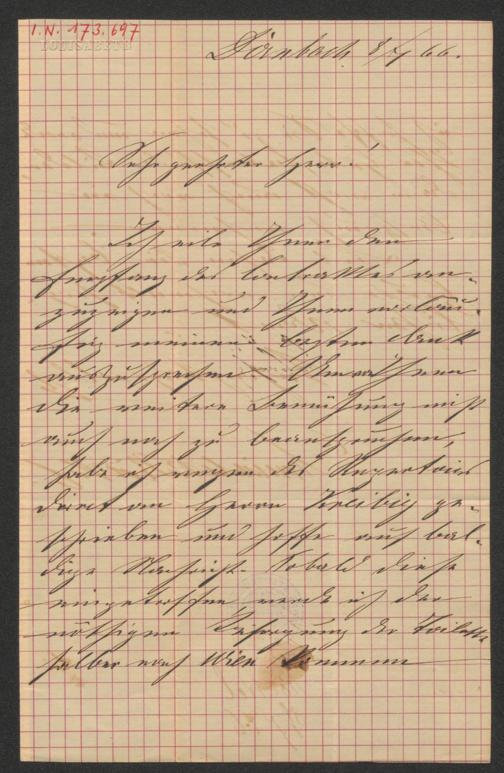 I. N. 173.697
LOUIS BATH
Dörnbach 8/7 66.
Sehr geehrter Herr!
Ich eile Ihnen den
Empfang des Contraktes an-
zuzeigen und Ihnen vorläu-
fig meinen besten Dank
auszusprechen. Um Ihnen
die weitere Bemühung nicht
auch noch zu beanspruchen,
habe ich wegen des Repertoirs
direct an Herrn Kreibig ge-
schrieben und hoffe auf bal-
dige Nachricht. Sobald diese
eingetroffen werde ich der
nöthigen Besorgung der Toilette
halber nach Wien kommen